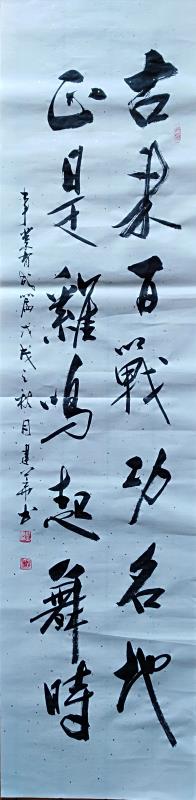 古來百戰功名地
正是雞鳴起舞時
戊戌之秋月建華書